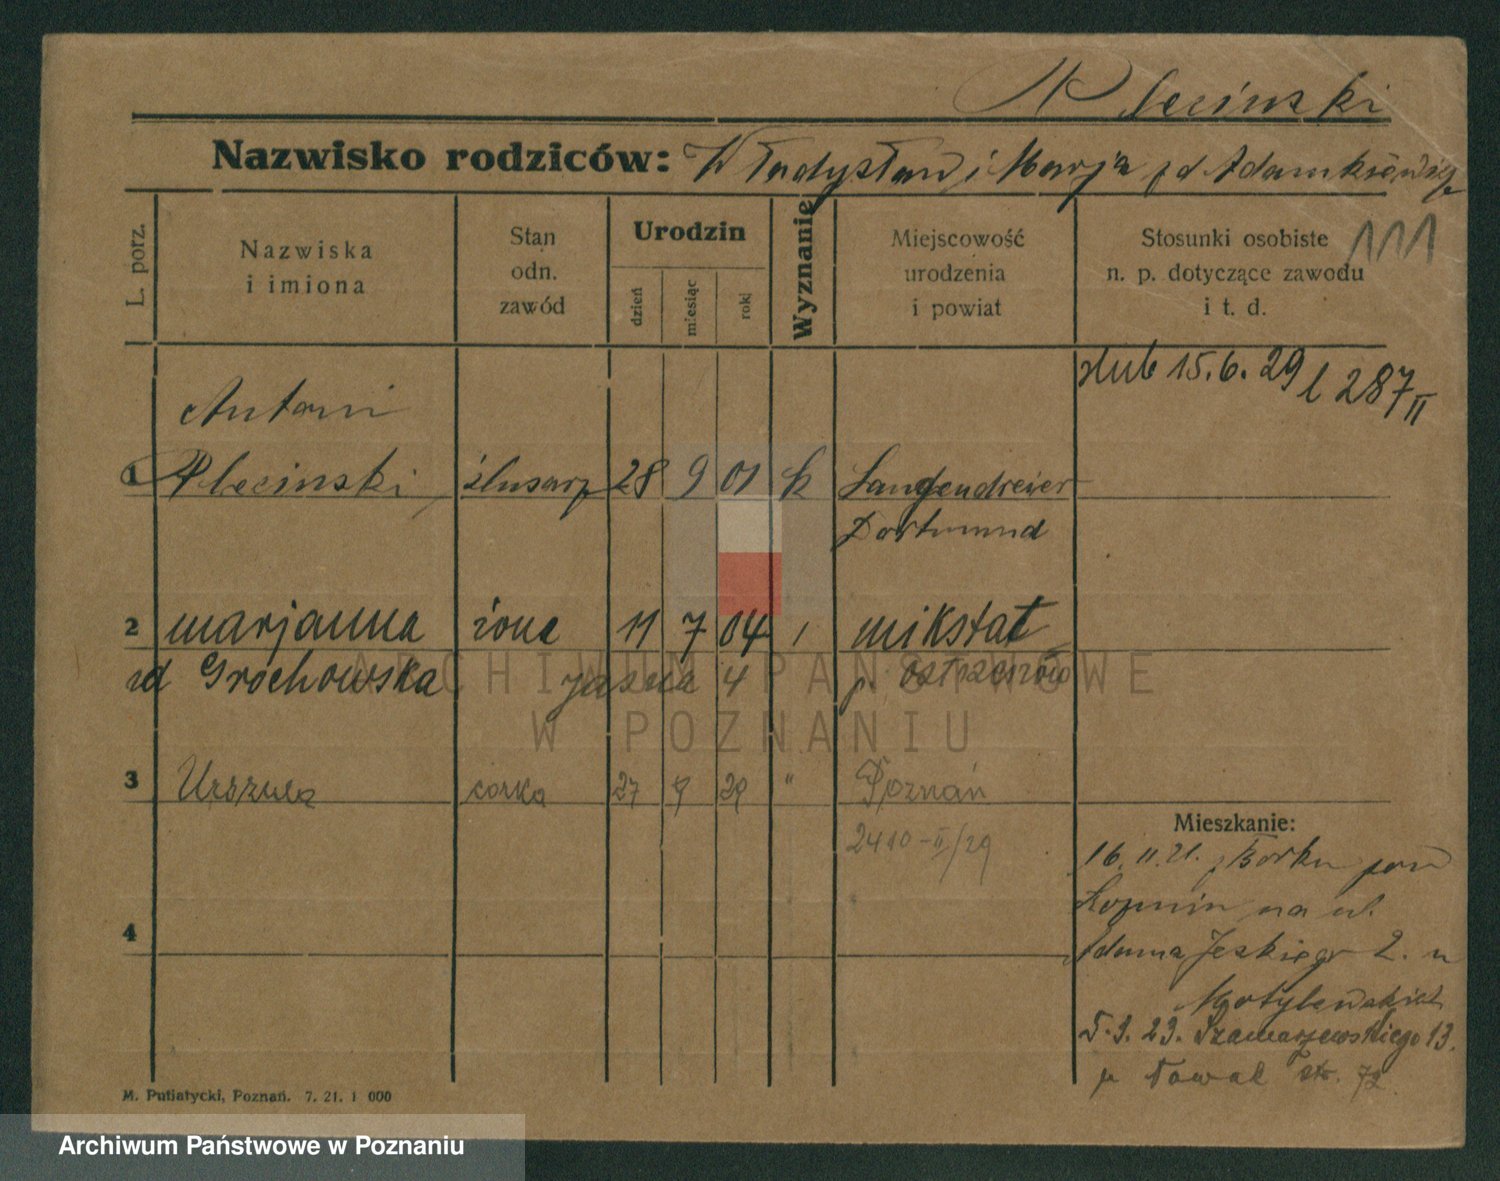 Plecinski
Nazwisko rodziców: Władysław i Marja zd Adamkiewicz
L. porz.
Nazwiska
i imiona
Stan
odn.
zawód
Urodzin
dzień
miesiąc
rok
Wyznanie
Miejscowość
urodzenia
i powiat
Stosunki osobiste
n. p. dotyczące zawodu
i t. d.
111
ślub 15.6.29 l 287 II
Antoni
1 Plecinski ślusarz 28 9 01 k Langendreier
Dortmund
2 marjanna żona 11 7 04 / mikstat
zd Grochowska Jasna 4 p. ostrzeszów
3 Urszula córka 27 9 29 " Poznań
2410-II/29
4
Mieszkanie:
16.11.21. z Borku pow
Kozmin na ul.
Adama Jeskiego 2. u
Motylewskich
5.3.23. Szamarzewskiego 13.
u Kowal 72
M. Putiatycki, Poznań. 7. 21. 1 000
ARCHIWUM PAŃSTWOWE
W POZNANIU
Archiwum Państwowe w Poznaniu